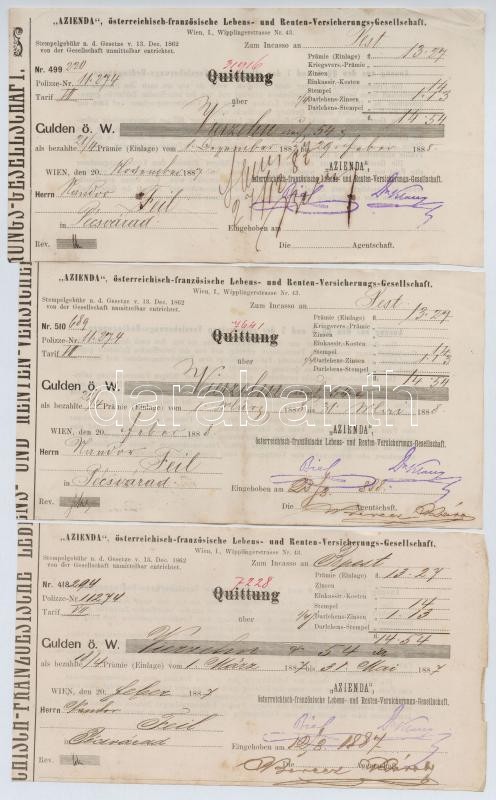 „AZIENDA“, österreichisch-französische Lebens- und Renten-Versicherungs-Gesellschaft.
Wien, I., Wipplingerstrasse Nr. 43.
Stempelgebühr n. d. Gesetze v. 13. Dec. 1862
von der Gesellschaft unmittelbar entrichtet.
Zum Incasso an Pest
Nr. 499 220
Polizze-Nr. 11.274
Tarif VII
21916
Quittung
über
Prämie (Einlage) fl. 13.27
Kriegsvers.-Prämie
Zinsen
Einkassir.-Kosten
Stempel
Darlehens-Zinsen 1.13
Darlehens-Stempel
fl. 14.54
Gulden ö. W. Vierzehn 54
als bezahlte 2/4 Prämie (Einlage) vom 1. Dezember 1887 bis 29 Feber 1888.
WIEN, den 20. November 1887
Herrn Nandor Feil
in Pecsvárad
Rev.
„AZIENDA“,
österreichisch-französische Lebens- und Renten-Versicherungs-Gesellschaft.
Eingehoben am
Die Agentschaft.
„AZIENDA“, österreichisch-französische Lebens- und Renten-Versicherungs-Gesellschaft.
Wien, I., Wipplingerstrasse Nr. 43.
Stempelgebühr n. d. Gesetze v. 13. Dec. 1862
von der Gesellschaft unmittelbar entrichtet.
Zum Incasso an Pest
Nr. 510 689
Polizze-Nr. 11.274
Tarif VII
7641
Quittung
über
Prämie (Einlage) fl. 13.27
Kriegsvers.-Prämie
Zinsen
Einkassir.-Kosten
Stempel
Darlehens-Zinsen 1.13
Darlehens-Stempel
fl. 14.54
Gulden ö. W. Vierzehn
als bezahlte Prämie (Einlage) vom 1. März 1888 bis 31. Mai 1888.
WIEN, den 20. Feber 1888.
Herrn Nandor Feil
in Pecsvárad
Rev.
„AZIENDA“,
österreichisch-französische Lebens- und Renten-Versicherungs-Gesellschaft.
Eingehoben am
Die Agentschaft.
darabanth
„AZIENDA“, österreichisch-französische Lebens- und Renten-Versicherungs-Gesellschaft.
Wien, I., Wipplingerstrasse Nr. 43.
Stempelgebühr n. d. Gesetze v. 13. Dec. 1862
von der Gesellschaft unmittelbar entrichtet.
Zum Incasso an
Nr. 418.294
Polizze-Nr. 11274
Tarif VII
7228
Quittung
über
Prämie (Einlage) fl. 13.27
Zinsen
Einkassir.-Kosten
Stempel 14
Darlehens-Zinsen 1.13
Darlehens-Stempel
fl. 14.54
Gulden ö. W. Vierzehn 54
als bezahlte Prämie (Einlage) vom 1. März 1887 bis 31. Mai 1887
WIEN, den 20. Feber 1887
Herrn Nandor Feil
in Pecsvárad
Rev.
„AZIENDA“,
österreichisch-französische Lebens- und Renten-Versicherungs-Gesellschaft.
Eingehoben am 1887
Die Agentschaft.